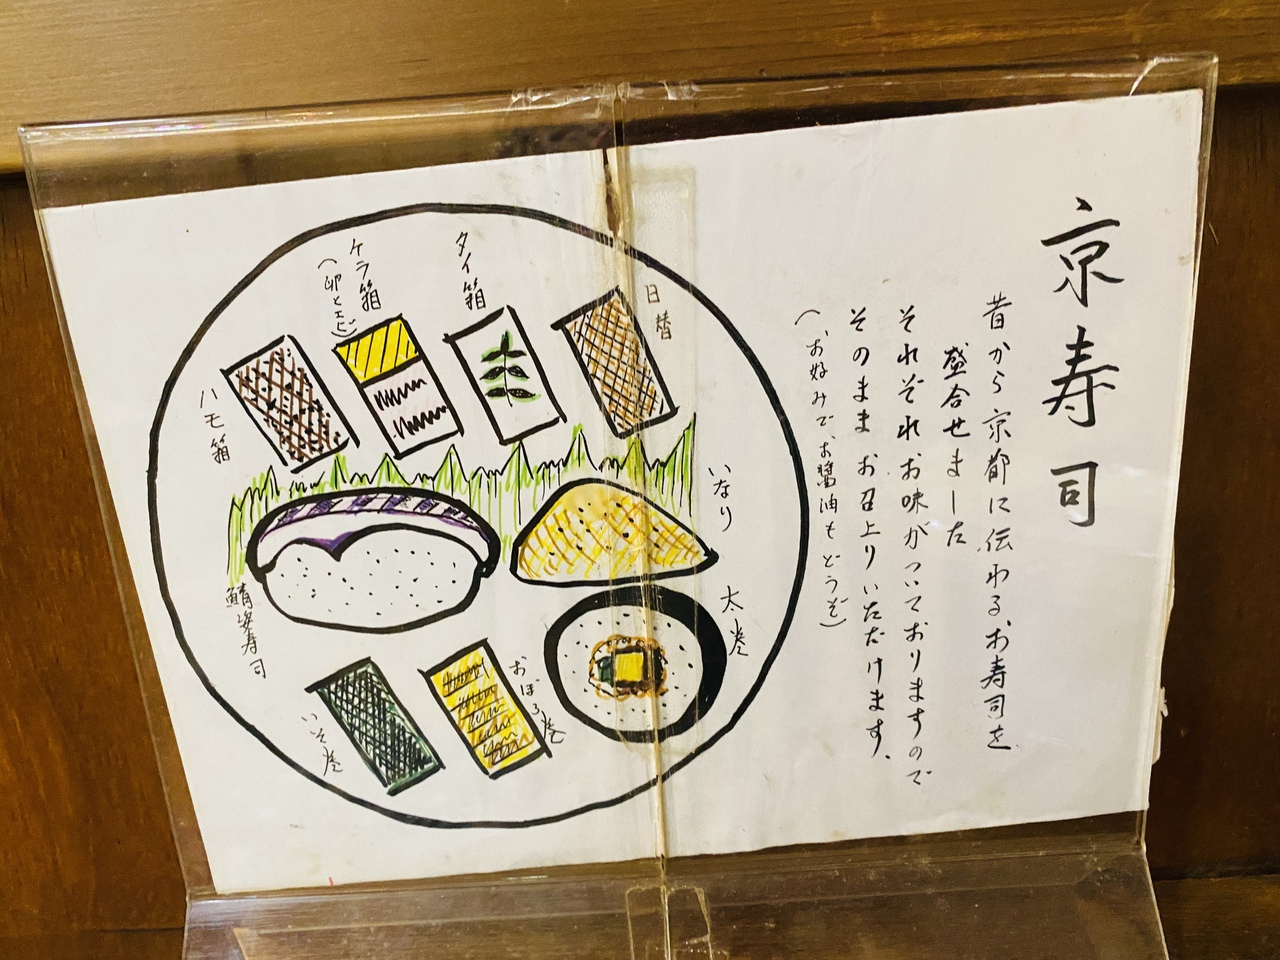 京寿司
昔から京都に伝わるお寿司を
盛合せました
それぞれお味がついておりますので
そのままお召上りいただけます。
(お好みでお醤油もどうぞ)
日替
タイ箱
ケラ箱
(卵とエビ)
ハモ箱
いなり
鯖姿寿司
太巻
おぼろ巻
いそ巻